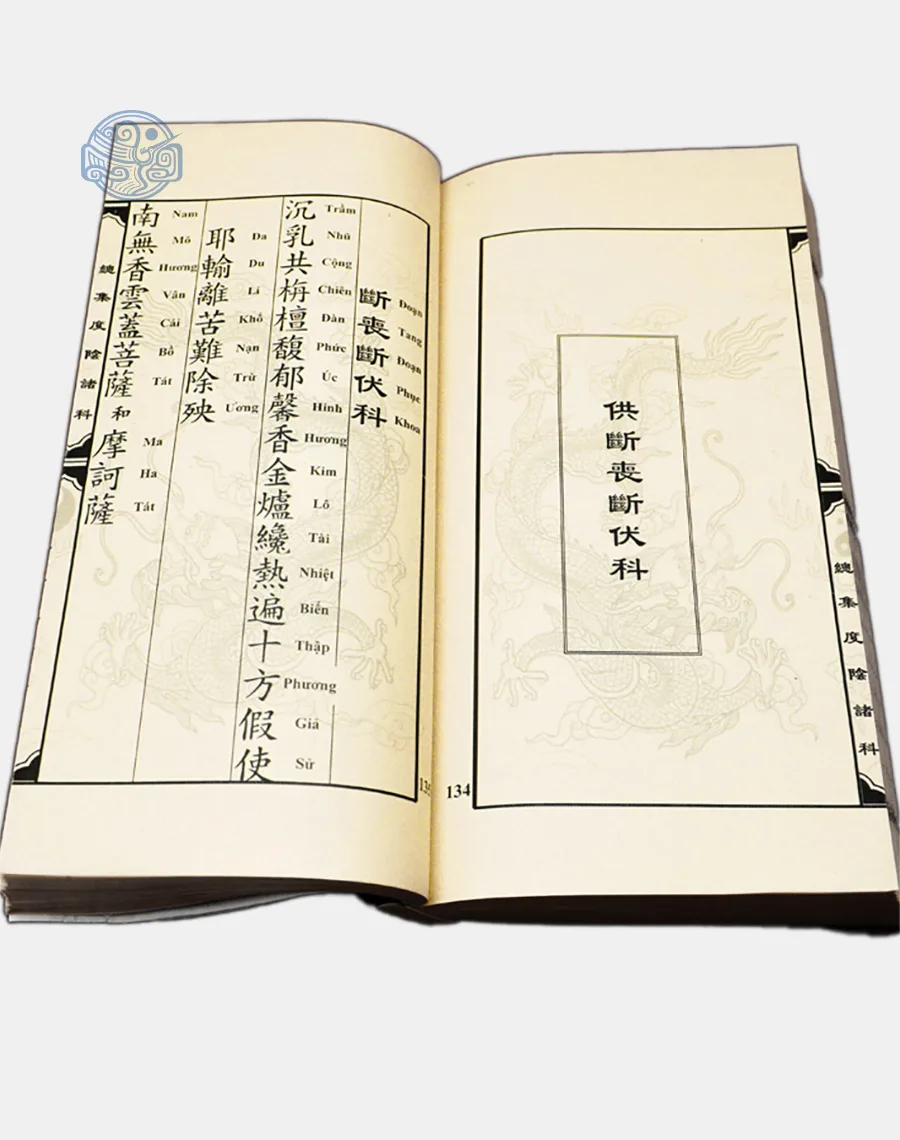 供斷喪斷伏科
總集度陰諸科
134
斷喪斷伏科
Đoạn Tang Đoạn Phục Khoa
沉乳共栴檀馥郁馨香金爐纔熱遍十方假使
Trầm Nhũ Cộng Chiên Đàn Phức Úc Hinh Hương Kim Lô Tài Nhiệt Biến Thập Phương Giá Sử
耶輸離苦難除殃
Da Du Lí Khổ Nạn Trừ Ương
南無香雲蓋菩薩和摩訶薩
Nam Mô Hương Vân Cái Bồ Tát Ma Ha Tát
總集度陰諸科